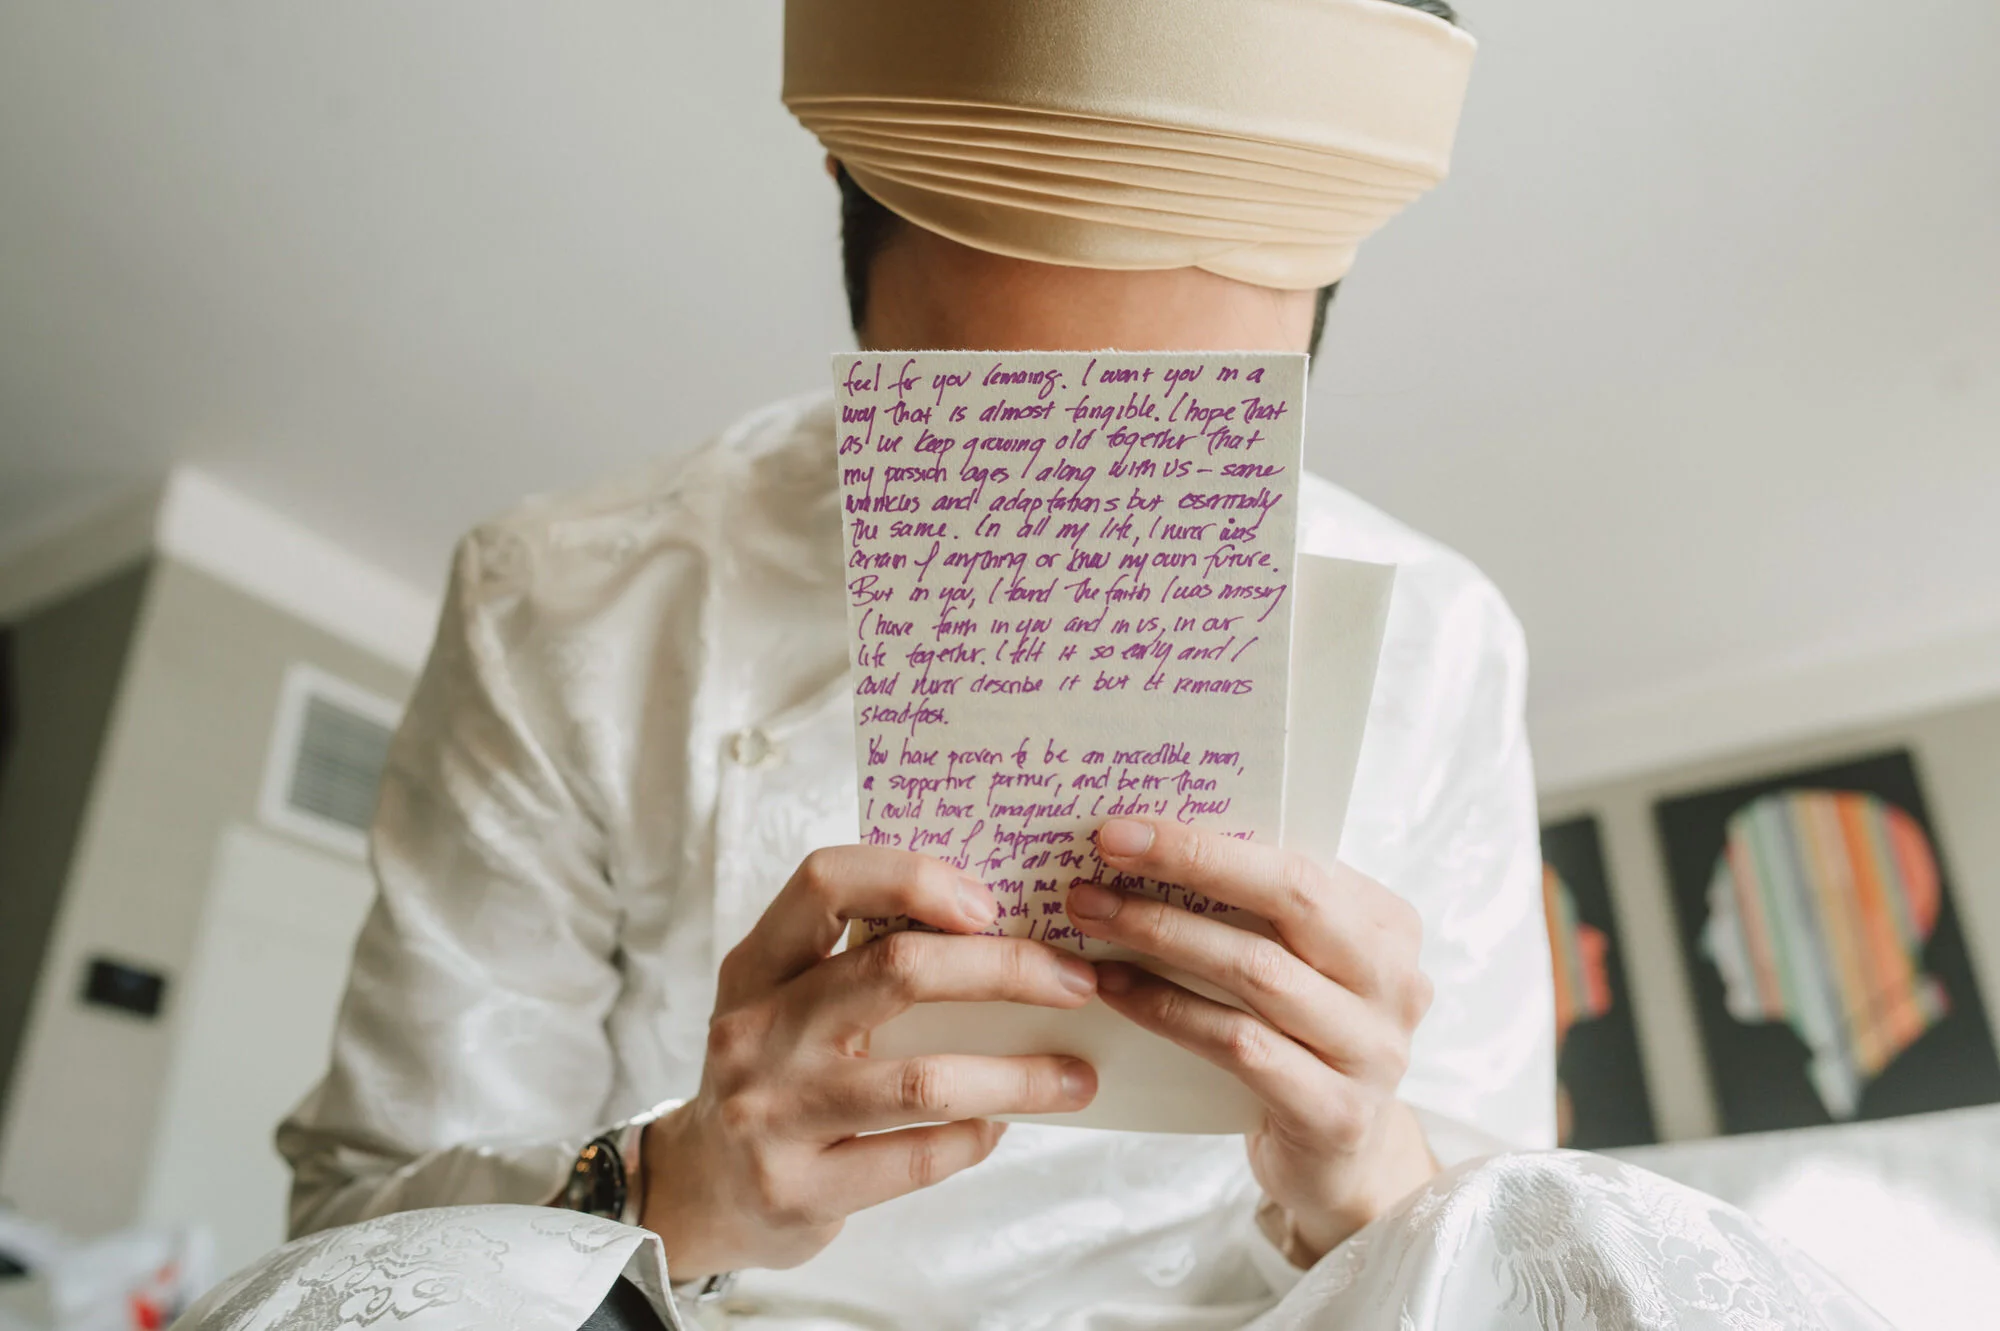 feel for you remaing. I want you in a
way that is almost tangible. I hope that
as we keep growing old together that
my passion ages along with us – some
wrinkles and adaptations but essentially
the same. In all my life, I never was
certain of anything or knew my own future.
But in you, I found the faith I was missing
I have faith in you and in us, in our
life together. I felt it so early and I
could never describe it but it remains
steadfast.
You have proven to be an incredible man,
a supportive partner, and better than
I could have imagined. I didn't know
this kind of happiness
for all the
me and
what we You are
I love